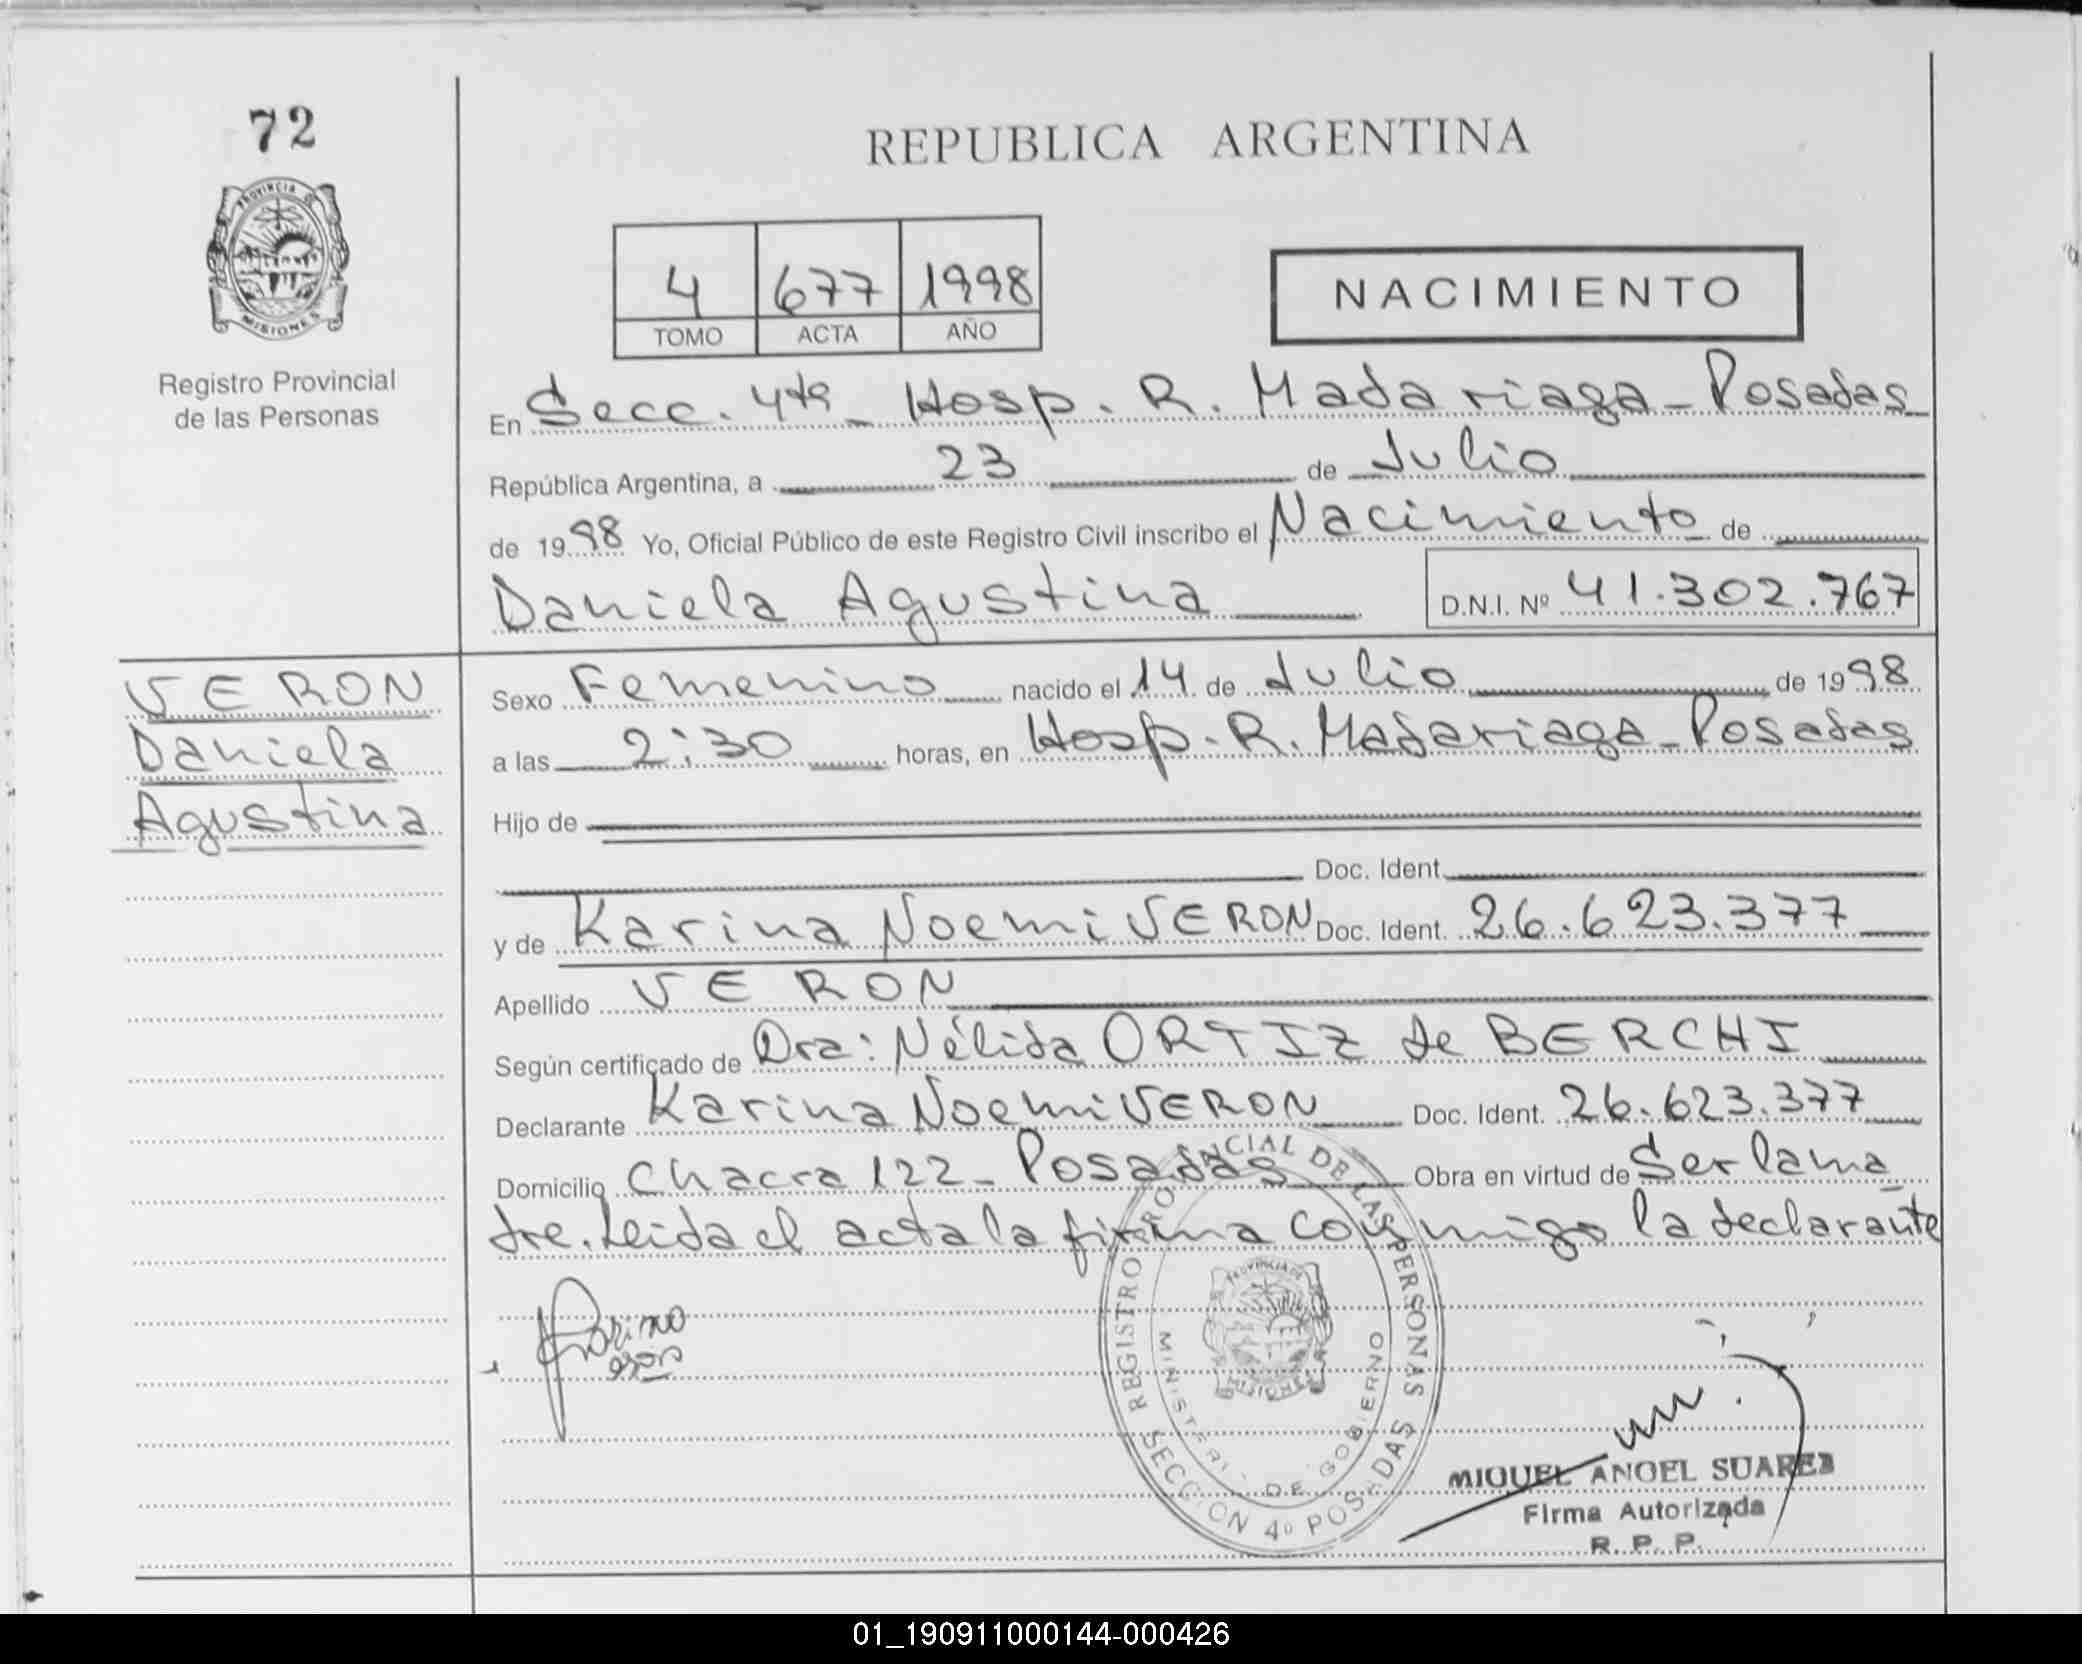 72
REPUBLICA ARGENTINA
PROVINCIA DE
MISIONES
4 677 1998
TOMO ACTA AÑO
NACIMIENTO
Registro Provincial
de las Personas
En Secc. 4ta - Hosp. R. Madariaga - Posadas
República Argentina, a 23 de Julio
de 1998 Yo, Oficial Público de este Registro Civil inscribo el Nacimiento de
Daniela Agustina D.N.I. Nº 41.302.767
VERON
Daniela
Agustina
Sexo Femenino nacido el 14 de Julio de 1998
a las 2:30 horas, en Hosp. R. Madariaga - Posadas
Hijo de
Doc. Ident.
y de Karina Noemi VERON Doc. Ident. 26.623.377
Apellido VERON
Según certificado de Dra: Nélida ORTIZ de BERCHI
Declarante Karina Noemi VERON Doc. Ident. 26.623.377
Domicilio Chacra 122 - Posadas Obra en virtud de Ser la ma_
dre. Leida el acta la firma conmigo la declarante
REGISTRO PROVINCIAL DE LAS PERSONAS
SECCION 4º POSADAS
MINISTERI DE GOBIERNO
PROVINCIA DE
MISIONES
MIGUEL ANGEL SUAREZ
Firma Autorizada
R. P. P.
01_190911000144-000426